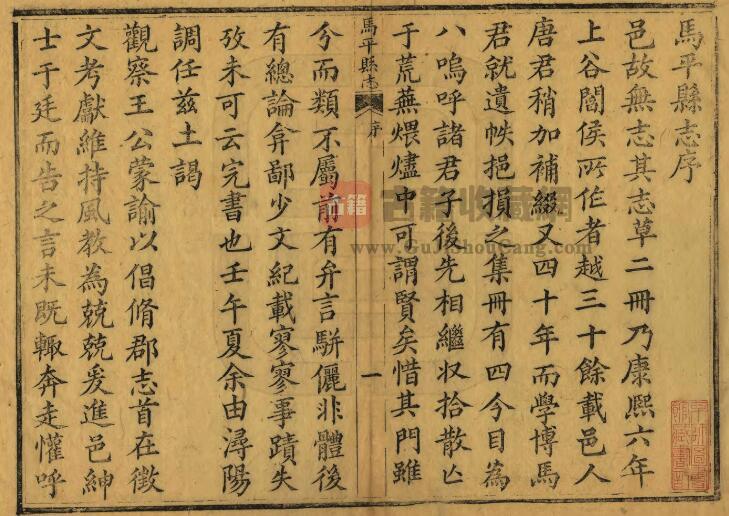 馬平縣志序
邑故無志其志草二冊乃康熙六年
上谷閻侯所作者越三十餘載邑人
唐君稍加補綴又四十年而學博馬
君就遺帙挹損之集冊有四今目為
八嗚呼諸君子後先相繼収拾散亡
于荒蕪煨燼中可謂賢矣惜其門雖
馬平縣志
序
一
分而類不屬前有弁言駢儷非體後
有總論弇鄙少文紀載寥寥事蹟失
攷未可云完書也壬午夏余由潯陽
調任茲土謁
觀察王公蒙諭以倡脩郡志首在徵
文考獻維持風教為兢兢爰進邑紳
士于廷而告之言未既輙奔走懽呼
古籍
古籍收藏網
www.GuJiShouCang.com